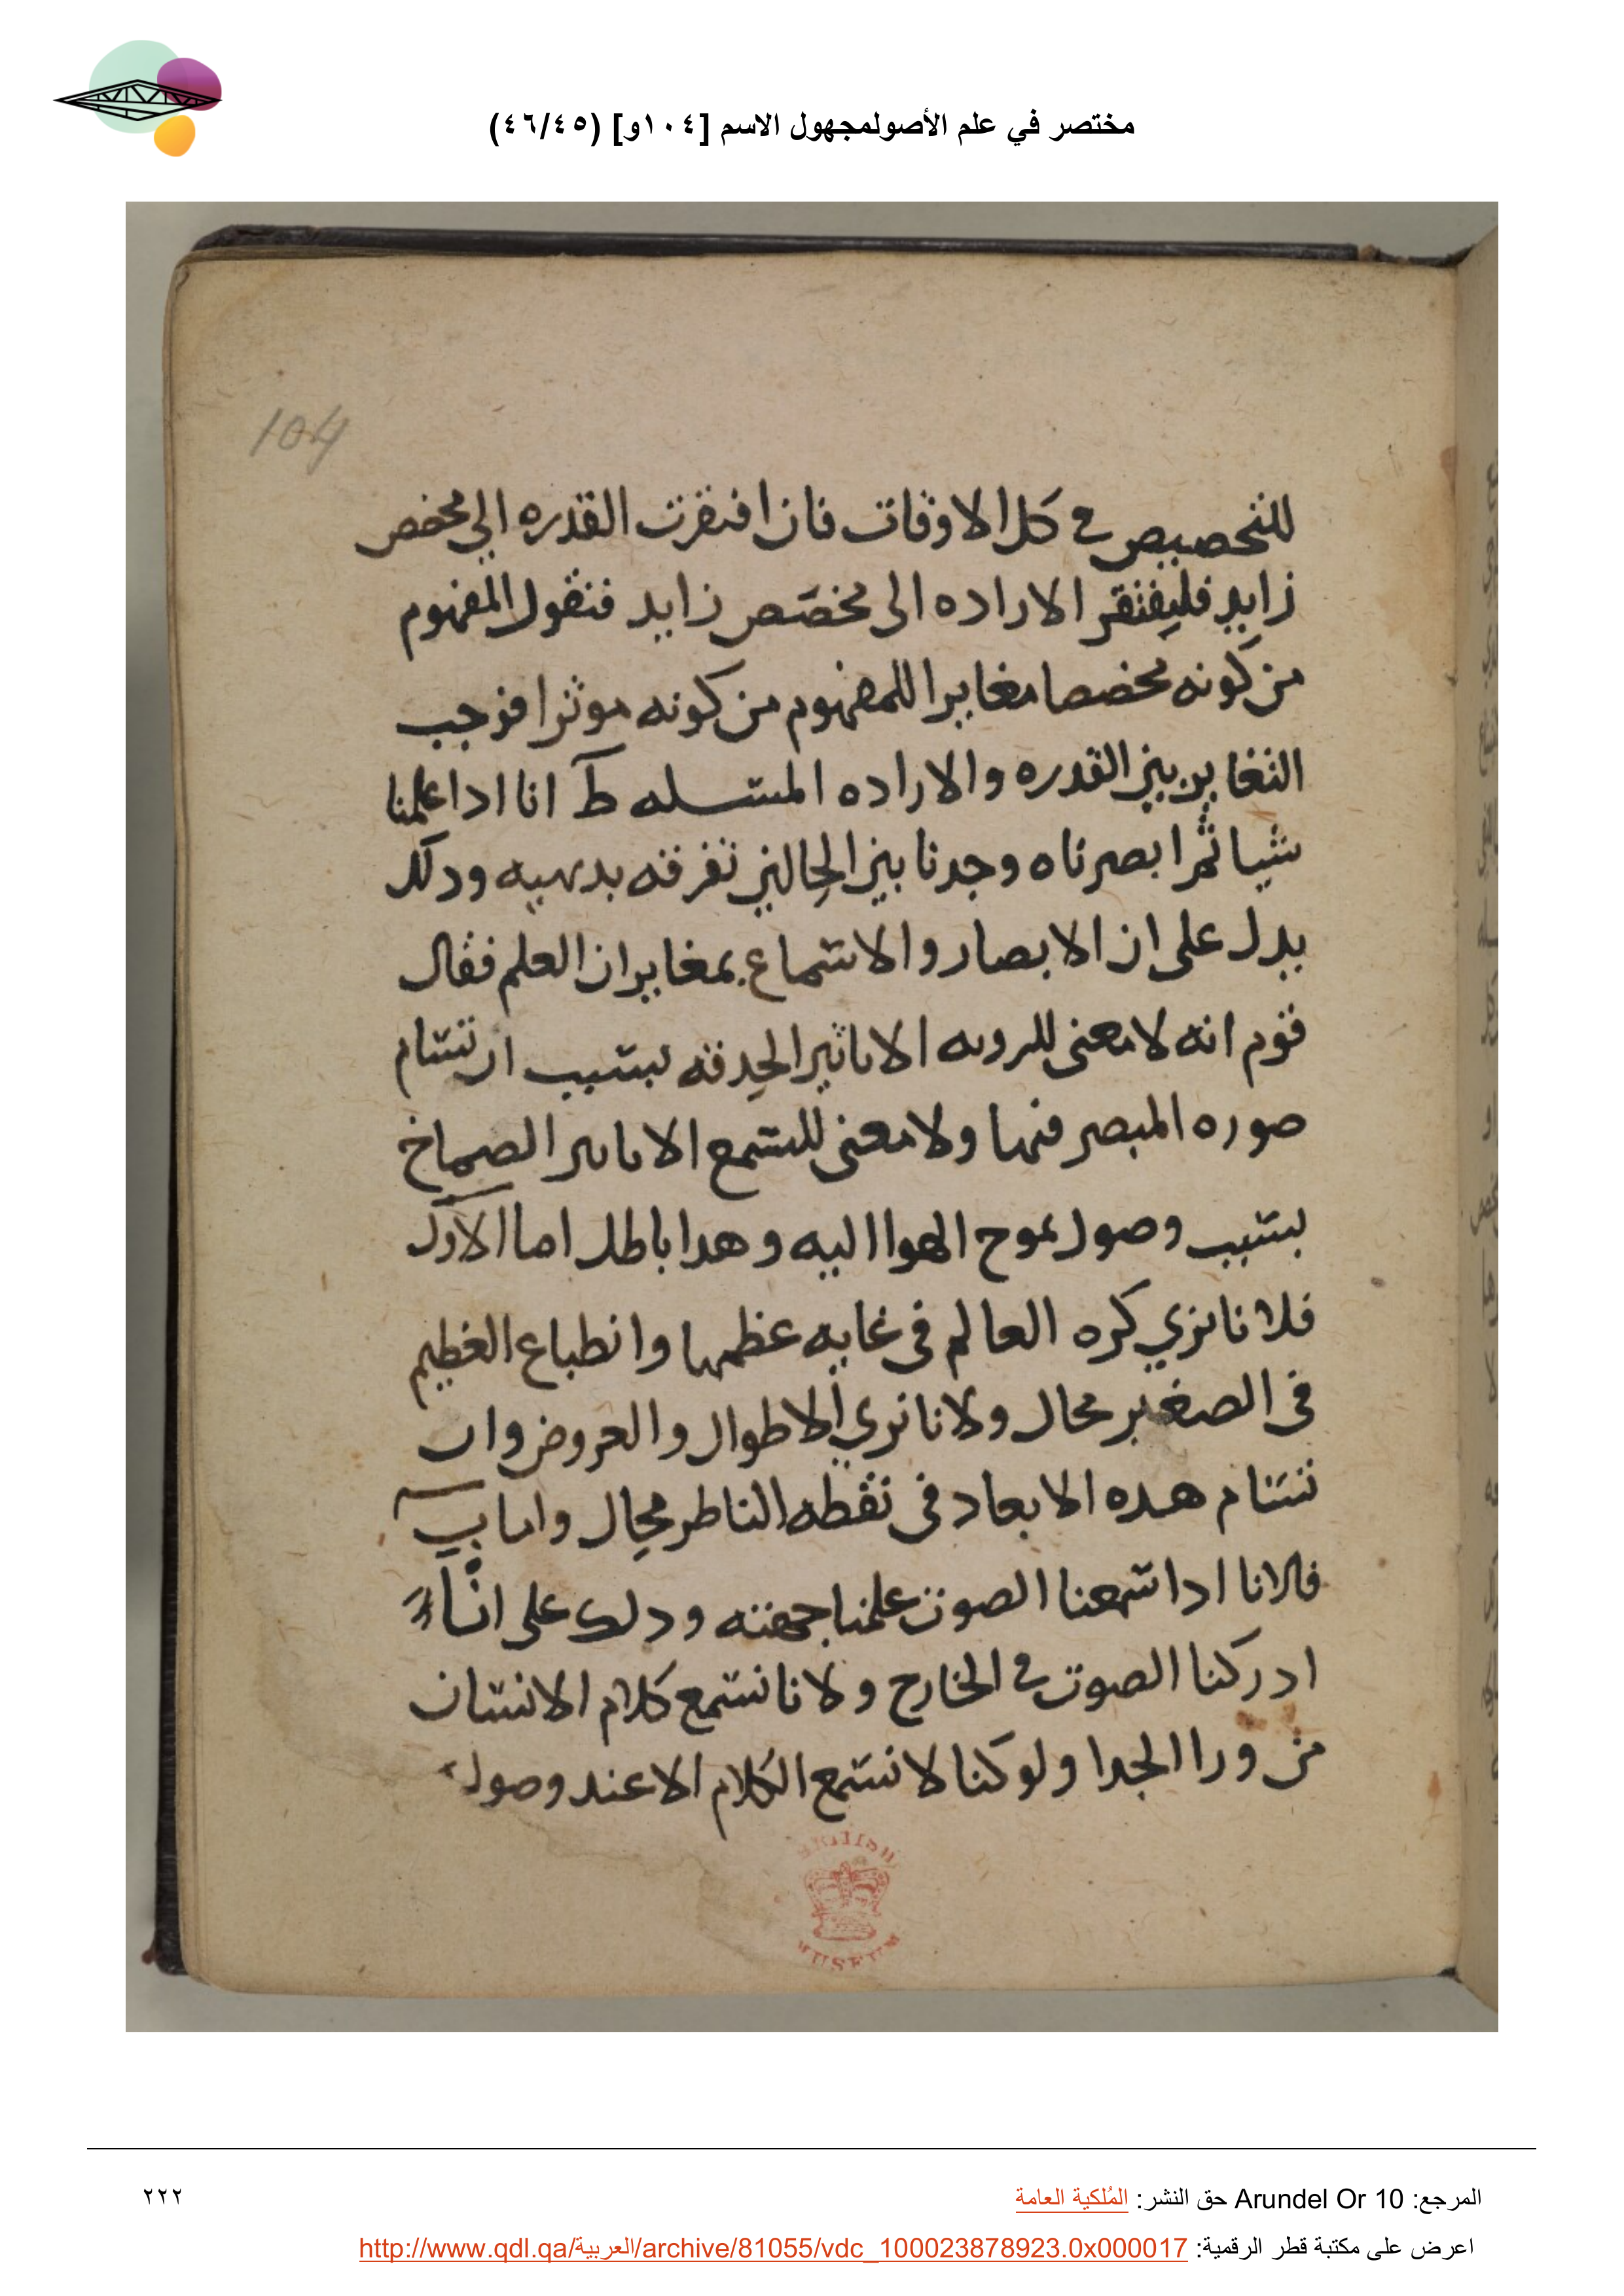 مختصر في علم الأصولمجهول الاسم [١٠٤و] (٤٦/٤٥)
104
للتخصيص في كل الاوقات فان افتقرت القدره الي مخصص
زايد فليفتقر الاراده الى مخصّص زايد فنقول المفهوم
من كونه مخصصا مغايرا للمفهوم من كونه موثرا فوجب
التغاير بين القدره والاراده المسله ط انا ادا علمنا
شيا ثم ابصرناه وجدنا بين الحالين تفرقه بديهيه ودلك
يدل على ان الابصار والاسماع بمغايران العلم فقال
قوم انه لا معنى للرويه الا تاثير الحدقه بسبب ارتسام
صوره المبصر فيها ولا معنى للسمع الا تاثير الصماخ
بسبب وصول تموج الهوا اليه وهدا باطل اما الاول
فلانا نري كره العالم في غايه عظمها وانطباع العظيم
في الصغير محال ولانا نري الاطوال والعروض وار
تسام هده الابعاد في نقطه الناظر محال واما ب
فلانا ادا سمعنا الصوت علمنا جهته ودلك على انّا
ادركنا الصوت في الخارج ولانا نسمع كلام الانسان
من ورا الجدا ولو كنا لا نسمع الكلام الا عند وصول
MUSEUM
المرجع: Arundel Or 10 حق النشر: المُلكية العامة
٢٢٢
اعرض على مكتبة قطر الرقمية: http://www.qdl.qa/العربية/archive/81055/vdc_100023878923.0x000017